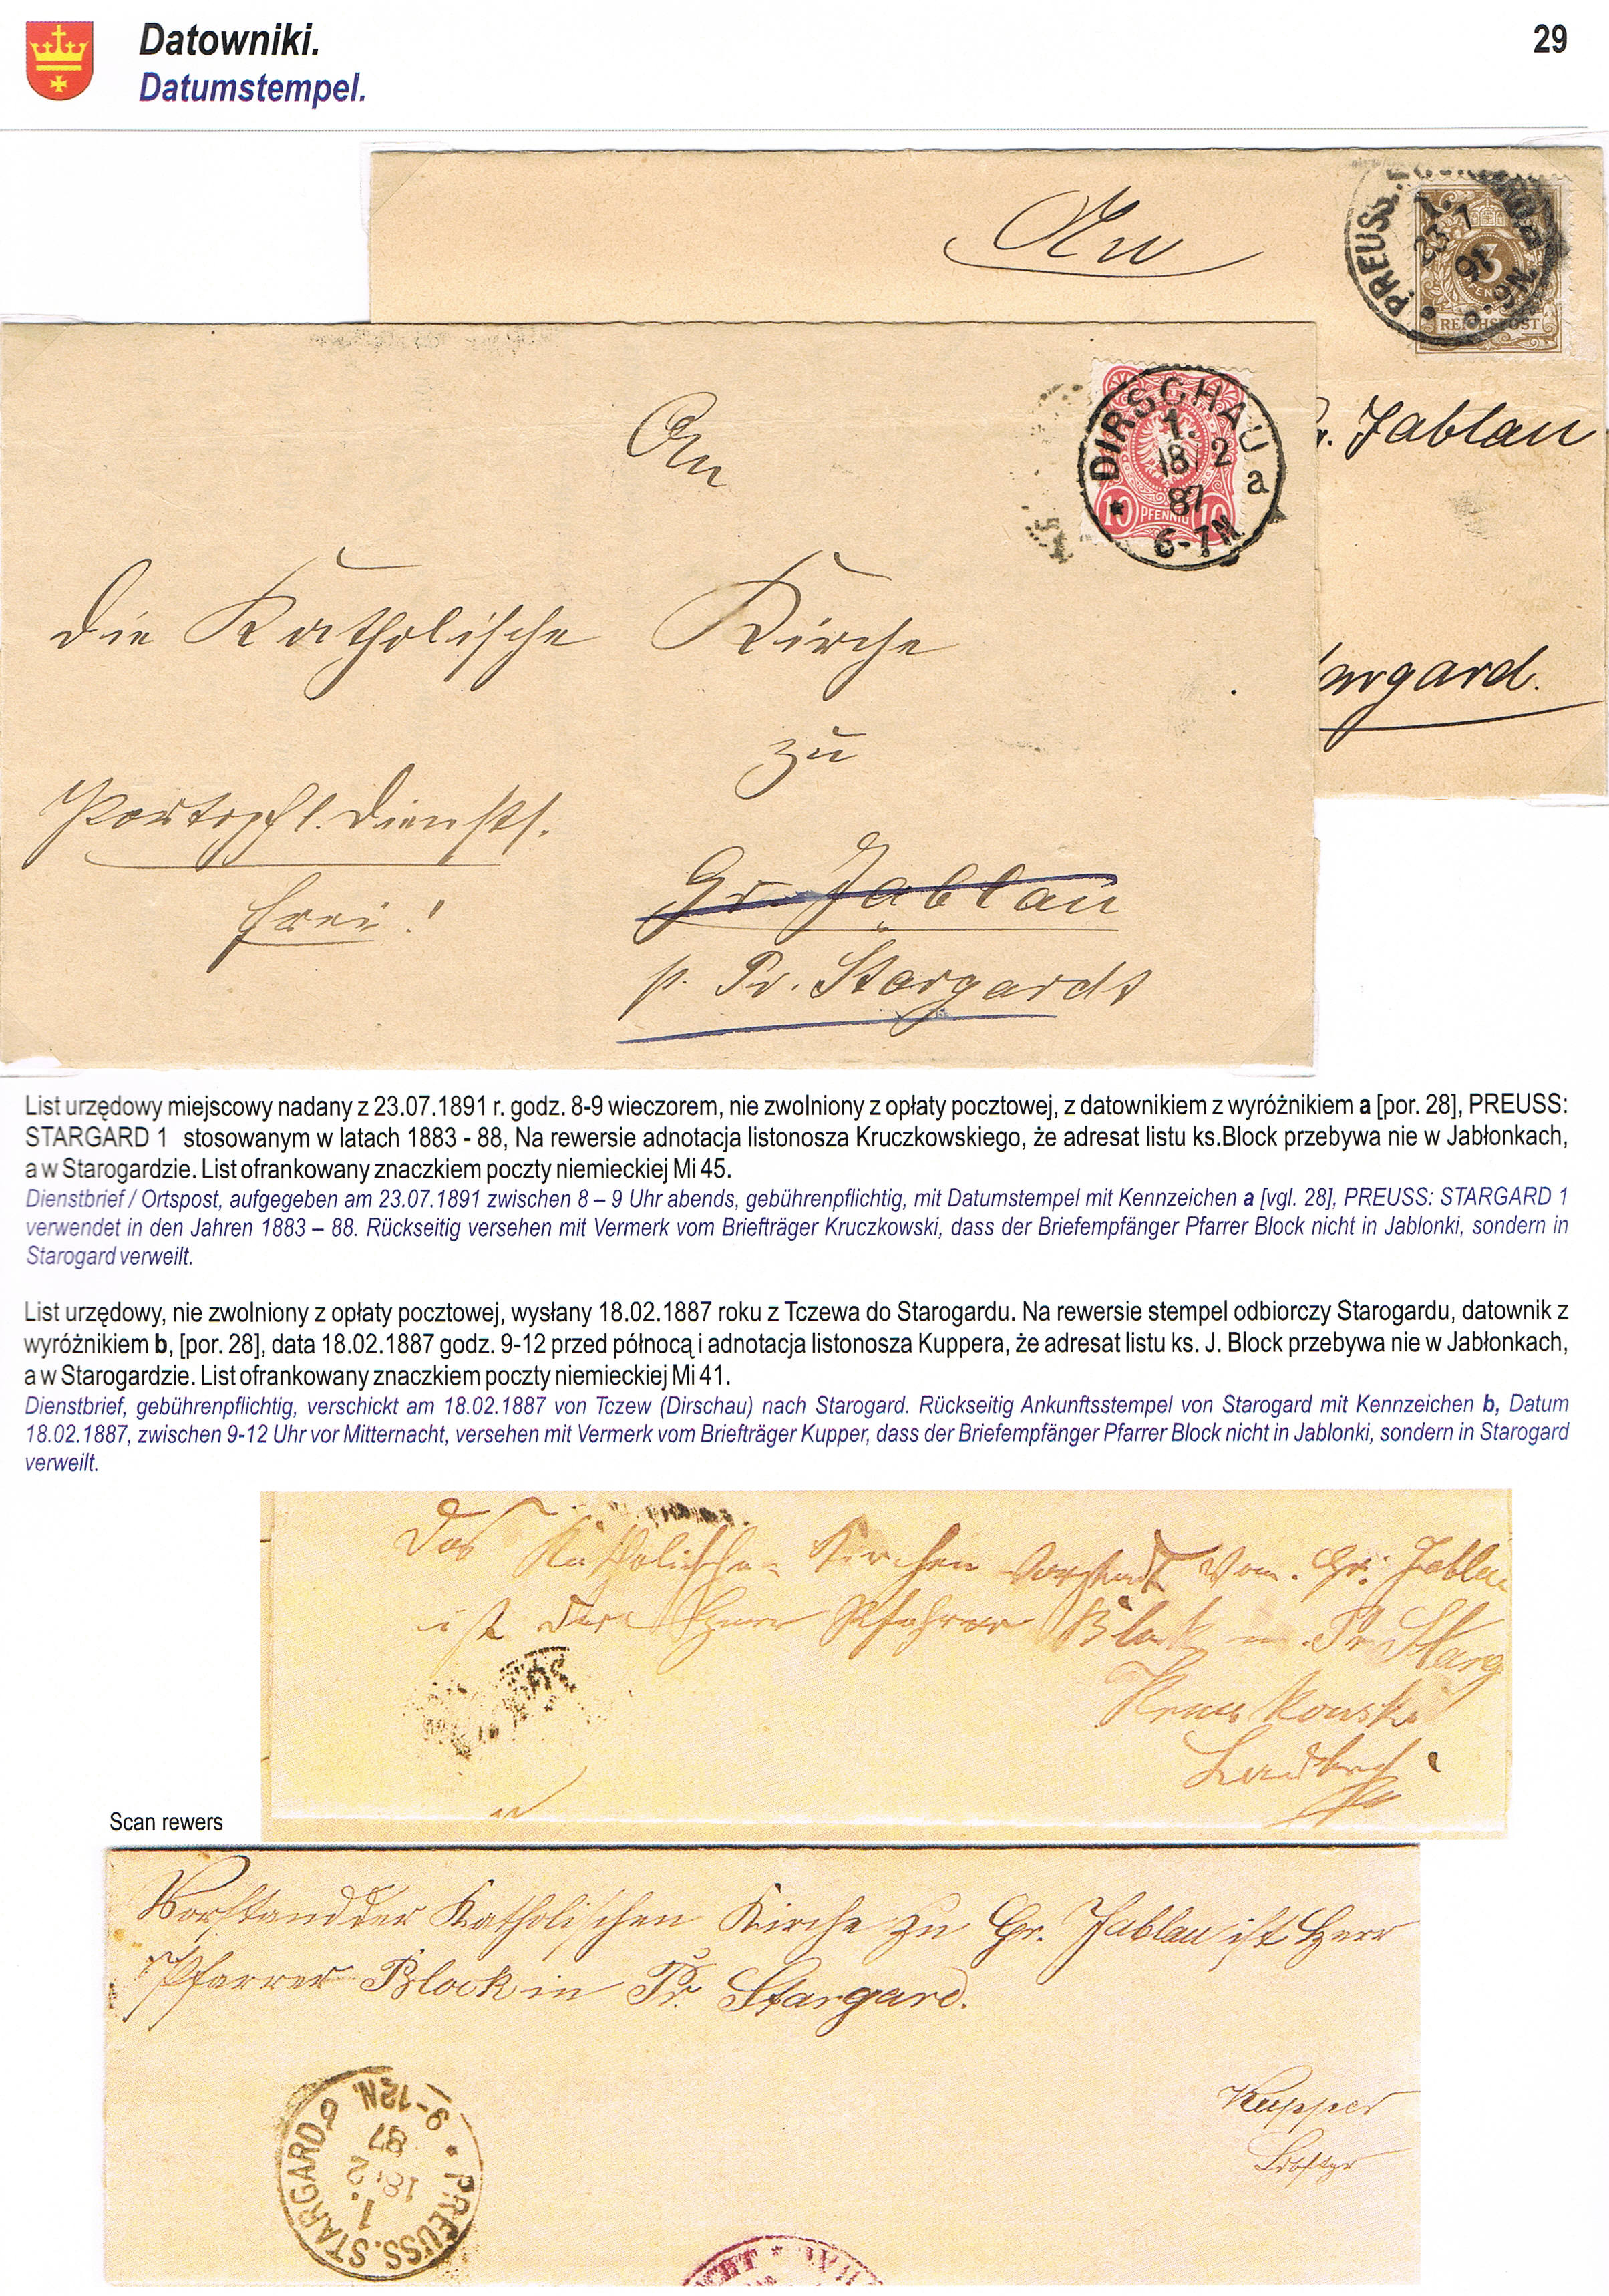 Datowniki.
29
Datumstempel.
An
PREUSS.
1.
23 7
91
3
PFENNIG
REICHSPOST
Gr. Jablau
Stargard.
An
DIRSCHAU
1.
18/2
87
a
* 6-7N
10 PFENNIG 10
die Katholische Kirche
zu
Portopfl. Dienst.
frei!
Gr. Jablau
p. Pr. Stargardt
List urzędowy miejscowy nadany z 23.07.1891 r. godz. 8-9 wieczorem, nie zwolniony z opłaty pocztowej, z datownikiem z wyróżnikiem a [por. 28], PREUSS:
STARGARD 1 stosowanym w latach 1883 - 88, Na rewersie adnotacja listonosza Kruczkowskiego, że adresat listu ks.Block przebywa nie w Jabłonkach,
a w Starogardzie. List ofrankowany znaczkiem poczty niemieckiej Mi 45.
Dienstbrief / Ortspost, aufgegeben am 23.07.1891 zwischen 8 – 9 Uhr abends, gebührenpflichtig, mit Datumstempel mit Kennzeichen a [vgl. 28], PREUSS: STARGARD 1
verwendet in den Jahren 1883 – 88. Rückseitig versehen mit Vermerk vom Briefträger Kruczkowski, dass der Briefempfänger Pfarrer Block nicht in Jablonki, sondern in
Starogard verweilt.
List urzędowy, nie zwolniony z opłaty pocztowej, wysłany 18.02.1887 roku z Tczewa do Starogardu. Na rewersie stempel odbiorczy Starogardu, datownik z
wyróżnikiem b, [por. 28], data 18.02.1887 godz. 9-12 przed północą i adnotacja listonosza Kuppera, że adresat listu ks. J. Block przebywa nie w Jabłonkach,
a w Starogardzie. List ofrankowany znaczkiem poczty niemieckiej Mi 41.
Dienstbrief, gebührenpflichtig, verschickt am 18.02.1887 von Tczew (Dirschau) nach Starogard. Rückseitig Ankunftsstempel von Starogard mit Kennzeichen b, Datum
18.02.1887, zwischen 9-12 Uhr vor Mitternacht, versehen mit Vermerk vom Briefträger Kupper, dass der Briefempfänger Pfarrer Block nicht in Jablonki, sondern in Starogard
verweilt.
Das Katholische Kirchen Vorstandt Von. Gr. Jablau
ist der Herr Pfahrer Block in Pr Starg
Scan rewers
Vorstand der Katholischen Kirche zu Gr. Jablau ist Herr
Pfarrer Block in Pr. Stargard.
Kupper
PREUSS. STARGARD
1.
18/2
87
* 9-12N